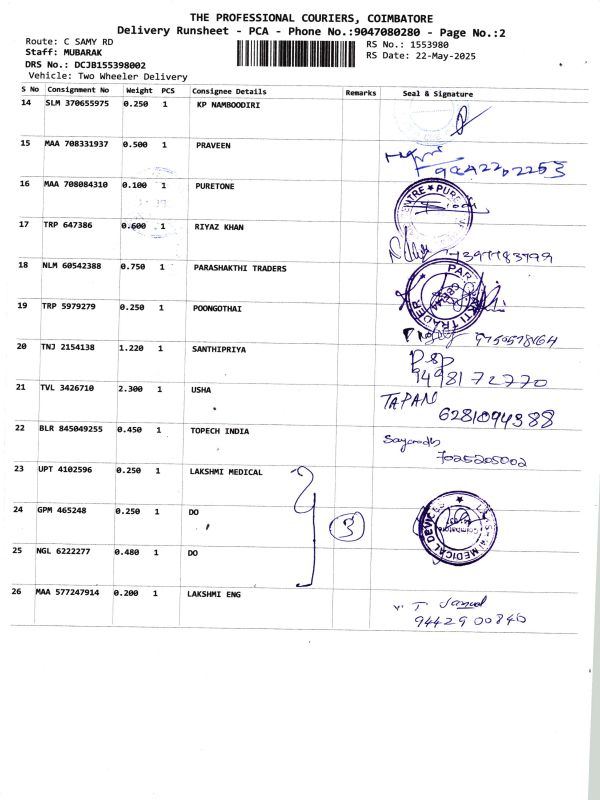 THE PROFESSIONAL COURIERS, COIMBATORE
Delivery Runsheet - PCA - Phone No.:9047080280 - Page No.:2
Route: C SAMY RD
Staff: MUBARAK
DRS No.: DCJB155398002
Vehicle: Two Wheeler Delivery
RS No.: 1553980
RS Date: 22-May-2025
S No Consignment No Weight PCS Consignee Details Remarks Seal & Signature
14 SLM 370655975 0.250 1 KP NAMBOODIRI
15 MAA 708331937 0.500 1 PRAVEEN
16 MAA 708084310 0.100 1 PURETONE
17 TRP 647386 0.600 1 RIYAZ KHAN
18 NLM 60542388 0.750 1 PARASHAKTHI TRADERS
19 TRP 5979279 0.250 1 POONGOTHAI
20 TNJ 2154138 1.220 1 SANTHIPRIYA
94981 72770
21 TVL 3426710 2.300 1 USHA TAPAN
6281094388
22 BLR 845049255 0.450 1 TOPECH INDIA
7025205002
23 UPT 4102596 0.250 1 LAKSHMI MEDICAL
24 GPM 465248 0.250 1 DO 3
25 NGL 6222277 0.480 1 DO
MEDICAL DEVICES
Coimbatore
26 MAA 577247914 0.200 1 LAKSHMI ENG
94429 00840